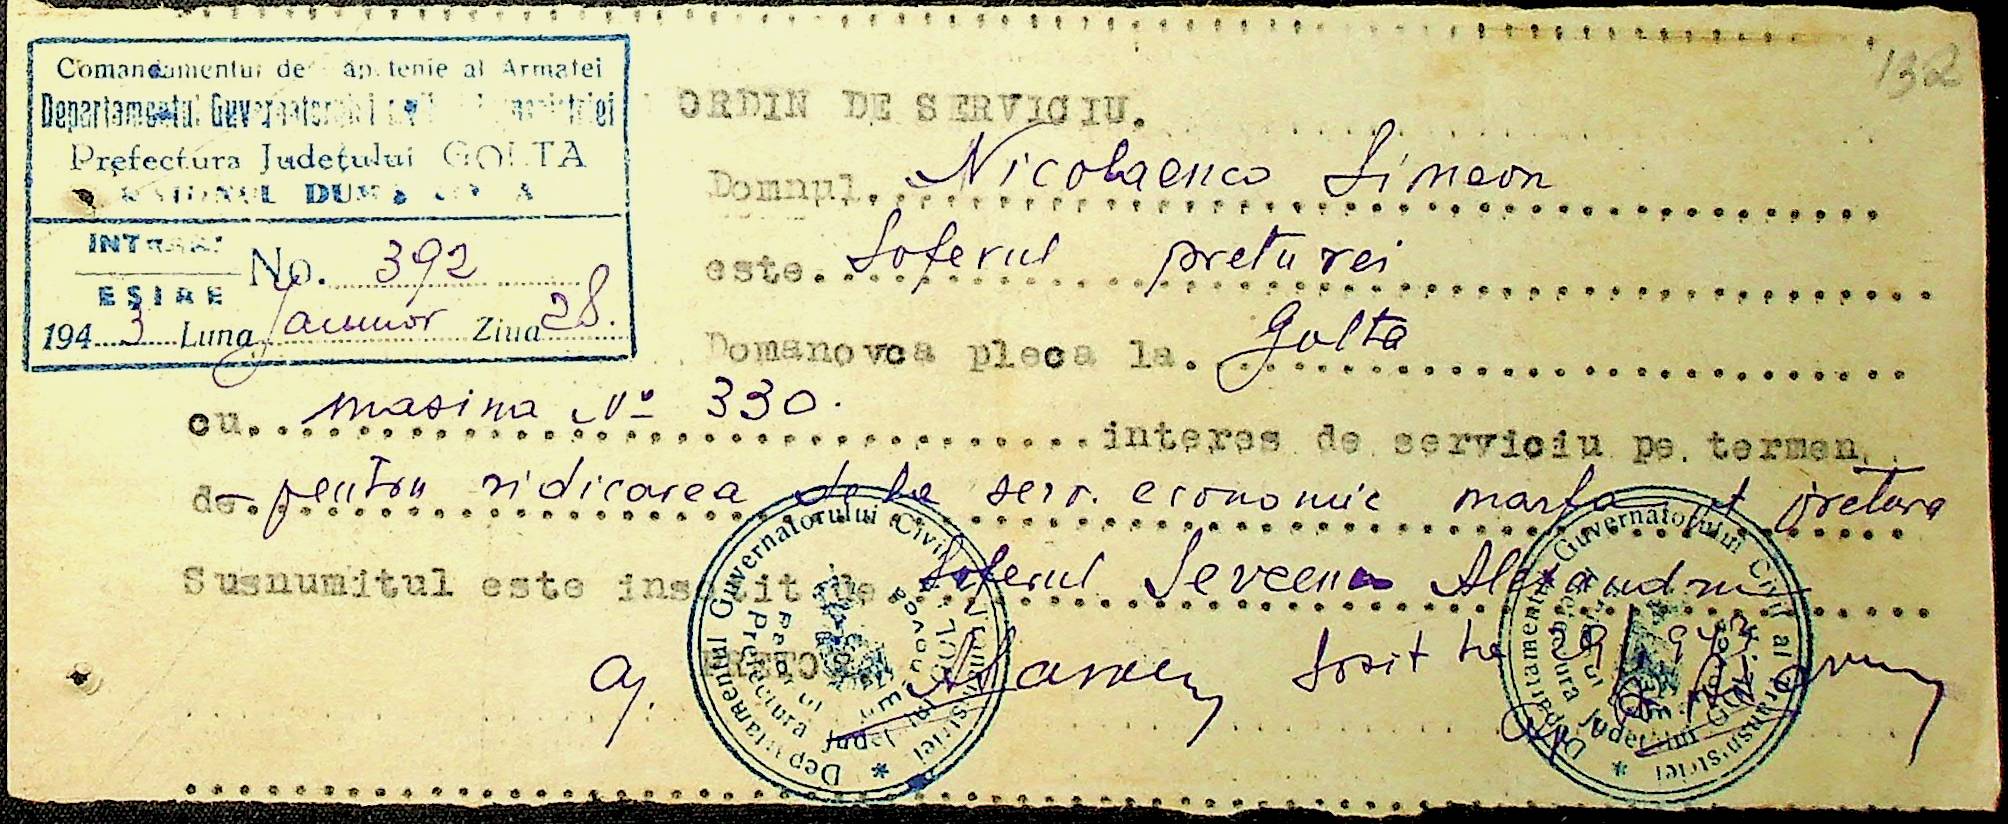 132
Comandamentul de Căpitenie al Armatei
Departamentul Guvernatorului Civil al Transnistriei
Prefectura Județului GOLTA
RAIONUL DUMANOVCA
INTRARE
EȘIRE
No. 392
194 3 Luna Ianuar Ziua 28.
ORDIN DE SERVICIU.
Domnul Nicolaenco Simeon
este Soferul preturei
Domanovca pleca la Golta
cu masina No 330.
interes de serviciu pe termen
de pentru ridicarea dela serv. economic marfa pt pretura
Susnumitul este insotit de Soferul Sevcenco Alexandru
aj. PRETOR
Sosit la 29 I 943
Departamentul Guvernatorului Civil al Transnistriei
Prefectura Județului GOLTA
Departamentul Guvernatorului Civil al Transnistriei
Prefectura Județului GOLTA